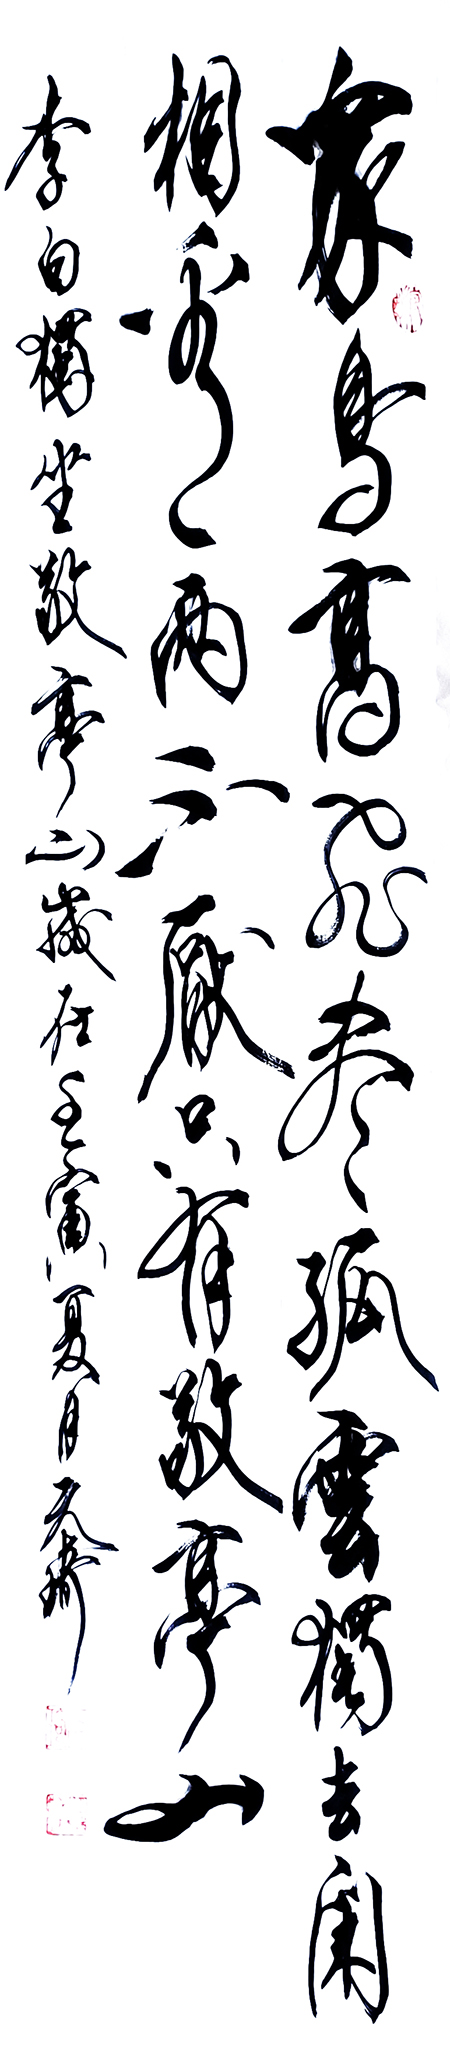 眾鳥高飛盡孤雲獨去閑
相看兩不厭只有敬亭山
李白獨坐敬亭山歲在壬寅夏月